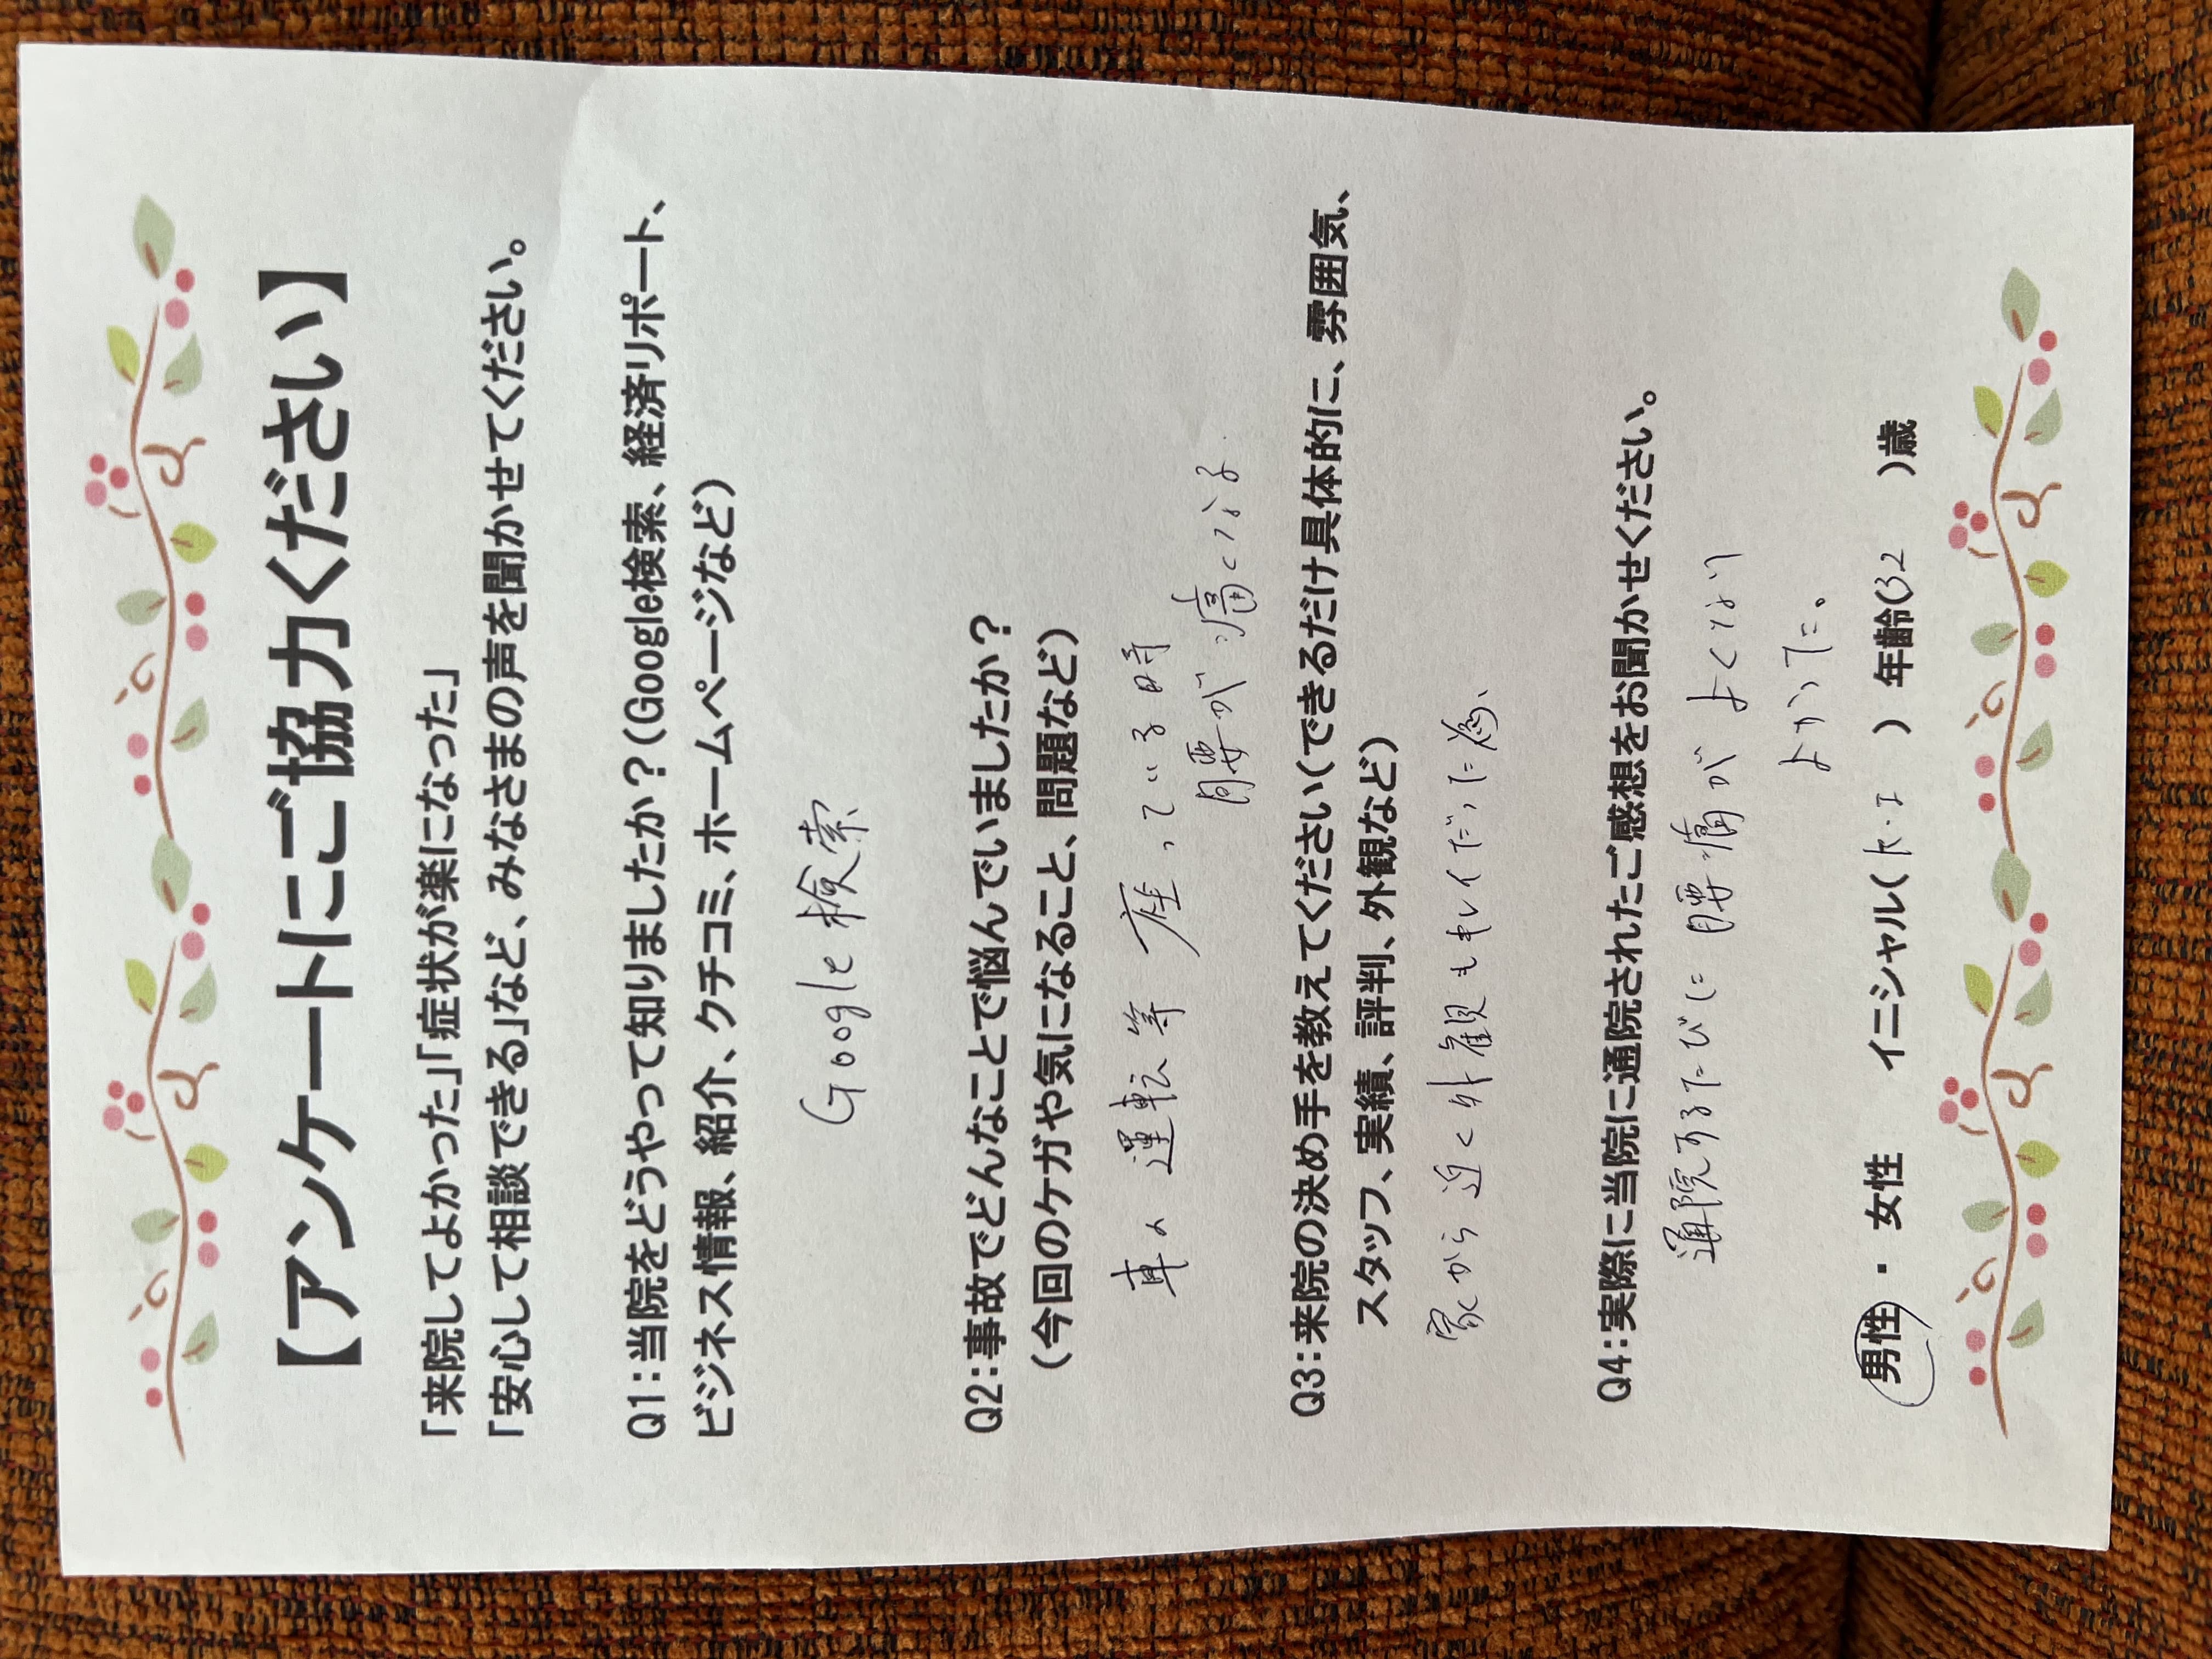 【アンケートにご協力ください】
「来院してよかった」「症状が楽になった」
「安心して相談できる」など、みなさまの声を聞かせてください。
Q1:当院をどうやって知りましたか?(Google検索、経済リポート、
ビジネス情報、紹介、クチコミ、ホームページなど)
Google検索
Q2:事故でどんなことで悩んでいましたか?
(今回のケガや気になること、問題など)
車の運転等座っている時
腰が痛くなる
Q3:来院の決め手を教えてください(できるだけ具体的に、雰囲気、
スタッフ、実績、評判、外観など)
家から近く外観もキレイだった為、
Q4:実際に当院に通院されたご感想をお聞かせください。
通院するたびに腰痛がよくなり
よかった。
男性・女性 イニシャル(k・I ) 年齢(32 )歳